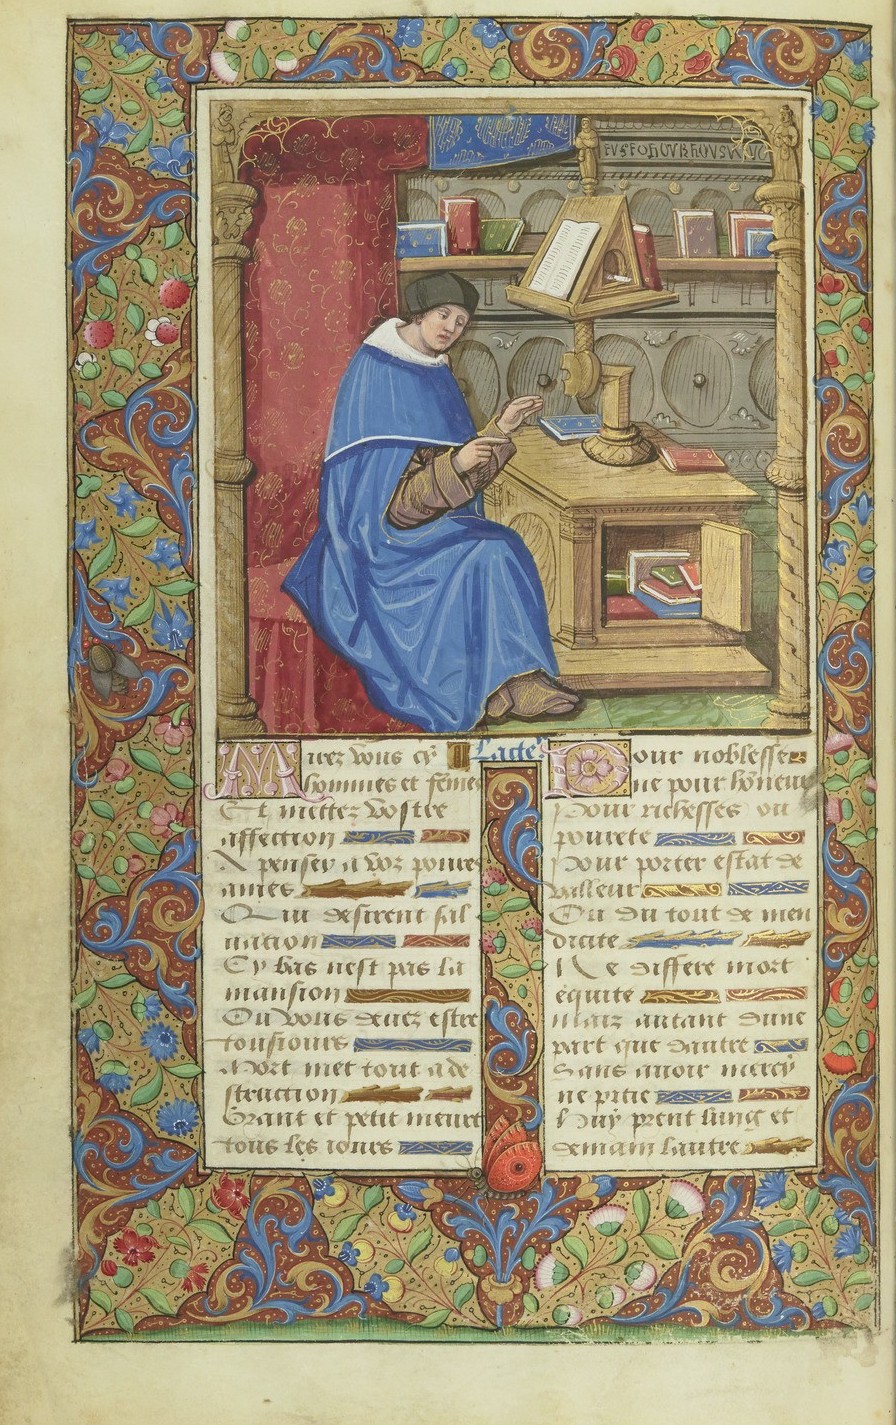 Lacteur
Mirez vous cy
hommes et femes
Et mettez vostre
affection
A pensey a voz poures
ames
Qui desirent sal
uacion
Cy bas nest pas la
mansion
Ou vous deuez estre
tousiours
Mort met tout a de
struction
Grant et petit meurt
tous les iours
Pour noblesse
ne pour honeur
Pour richesses ou
pourete
Pour porter estat de
valleur
Ou du tout de men
dicite
Ne differe mort
equite
Maiz autant dune
part que dautre
Sans auoir mercy
ne pitie
Huy prent lung et
demain lautre